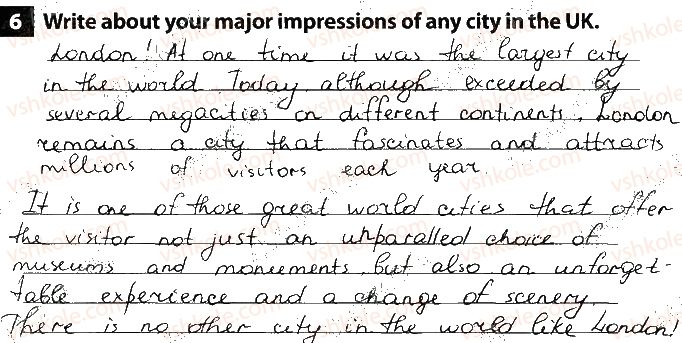 6 Write about your major impressions of any city in the UK.
London! At one time it was the largest city
in the world Today, although exceeded by
several megacities on different continents, London
remains a city that fascinates and attracts
millions of visitors each year
It is one of those great world cities that offer
the visitor not just an unparalled choice of
museums and monuments, but also an unforget-
table experience and a change of scenery.
There is no other city in the world like London!